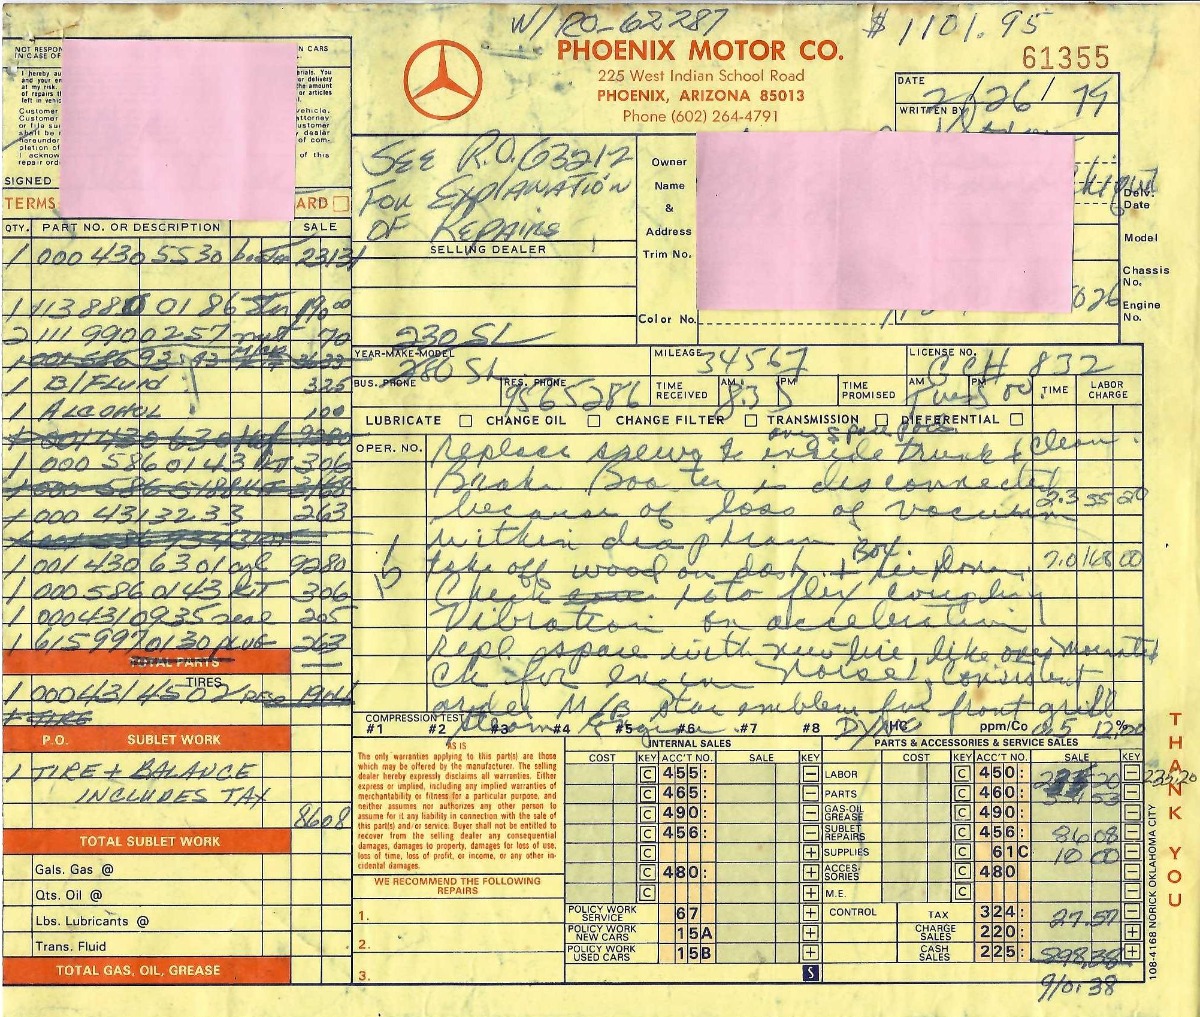 W/RO-62287
$1101.95
PHOENIX MOTOR CO.
61355
225 West Indian School Road
PHOENIX, ARIZONA 85013
Phone (602) 264-4791
DATE
2/26/79
WRITTEN BY
NOT RESPON
N CARS
IN CASE OF
I hereby au
erials. You
and your em
or delivery
at my risk.
the amount
of repairs th
or articles
left in vehic
Customer
vehicle.
Customer
attorney
or fila su
ustomer
shall be
dealer
hereunder
of com-
pletion of
I acknow
of this
repair ord
SIGNED
TERMS:
ARD
SEE R.O. 63212
FOR EXPLANATION
OF REPAIRS
SELLING DEALER
Owner
Name
&
Address
Trim No.
Color No.
Deliv. Date
Model
Chassis No.
Engine No.
026
QTY. PART NO. OR DESCRIPTION SALE
1 000 430 5530 booster 23131
1 113 880 01 86 Star 19.00
2 111 990 0257 nut 70
1 B/FLUID 325
1 ALCOHOL 100
1 000 586 0143 KIT 306
1 000 431 3233 263
1 001 430 6301 cyl 9280
1 000 586 0143 KIT 306
1 000 431 0935 seal 205
1 615 997 0130 PLUG 263
TOTAL PARTS
TIRES
1 000 431 4502
1 TIRE
P.O. SUBLET WORK
1 TIRE + BALANCE
INCLUDES TAX
8608
TOTAL SUBLET WORK
Gals. Gas @
Qts. Oil @
Lbs. Lubricants @
Trans. Fluid
TOTAL GAS, OIL, GREASE
230 SL
YEAR-MAKE-MODEL
280 SL
MILEAGE
34567
LICENSE NO.
CCH 832
BUS. PHONE
RES. PHONE
9565286
TIME RECEIVED
AM PM
835
TIME PROMISED
AM PM
Tues 500
TIME
LABOR CHARGE
LUBRICATE CHANGE OIL CHANGE FILTER TRANSMISSION DIFFERENTIAL
OPER. NO.
over spare
Replace screws to inside trunk + clean.
Brake Booster is disconnected
because of loss of vacuum 2.3 55 20
within diaphram
15 take off wood on dash + Box 7.0 168 00
Check into flex coupling
Vibration on acceleration
Repl spare with new tire like ones mounted
Ck for engine noise, consistent
order M/B star emblem for front grill
COMPRESSION TEST
#1 #2 #3 #4 #5 #6 #7 #8
HC ppm/Co %
AS IS
The only warranties applying to this part(s) are those
which may be offered by the manufacturer. The selling
dealer hereby expressly disclaims all warranties. Either
express or implied, including any implied warranties of
merchantability or fitness for a particular purpose, and
neither assumes nor authorizes any other person to
assume for it any liability in connection with the sale of
this part(s) and/or service. Buyer shall not be entitled to
recover from the selling dealer any consequential
damages, damages to property, damages for loss of use,
loss of time, loss of profit, or income, or any other in-
cidental damages.
WE RECOMMEND THE FOLLOWING
REPAIRS
1.
2.
3.
INTERNAL SALES
COST KEY ACC'T NO. SALE KEY
C 455: −
C 465: −
C 490: −
C 456: −
C +
C 480: +
C +
POLICY WORK SERVICE 67 +
POLICY WORK NEW CARS 15A +
POLICY WORK USED CARS 15B +
S
PARTS & ACCESSORIES & SERVICE SALES
COST KEY ACC'T NO. SALE KEY
LABOR C 450: − 235.20
PARTS C 460: −
GAS-OIL GREASE C 490: −
SUBLET REPAIRS C 456: 86 08 −
SUPPLIES 61C 10 00 −
ACCESSORIES C 480 −
M.E. C −
CONTROL
TAX 324: 27.57 −
CHARGE SALES 220: +
CASH SALES 225: 898.38 +
910.38
THANK YOU
108-4168 NORICK OKLAHOMA CITY